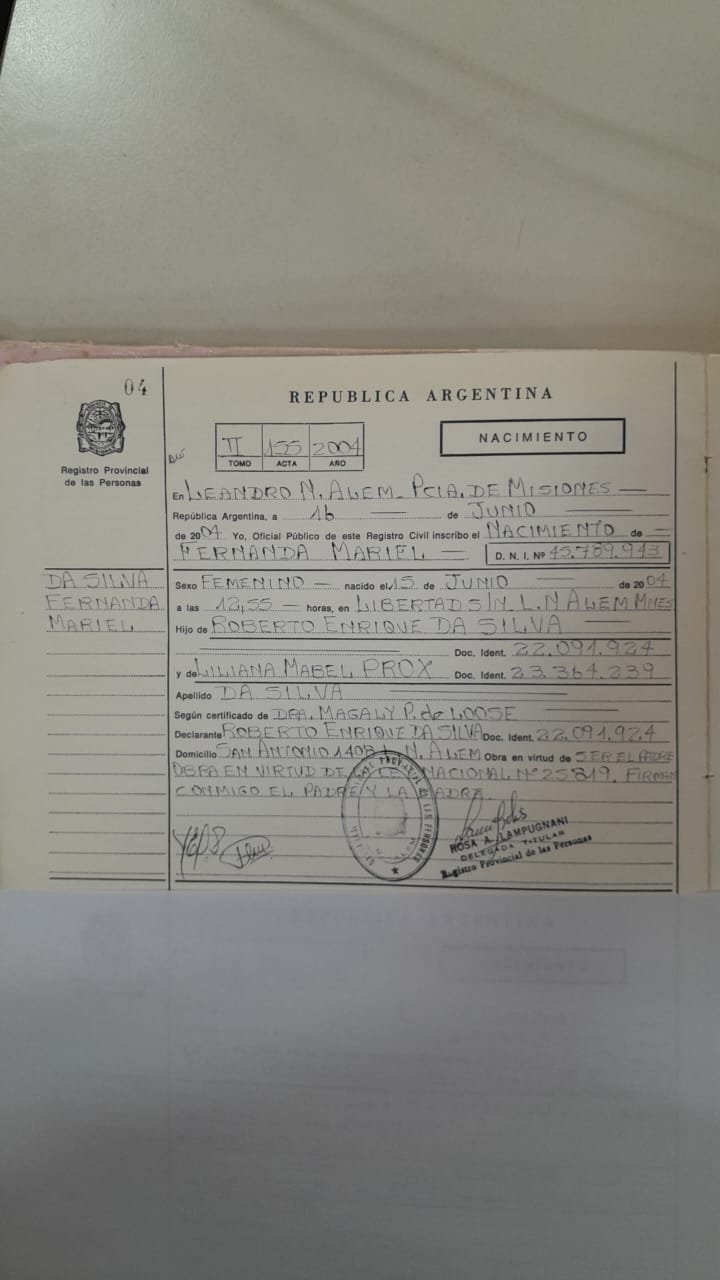 04
REPUBLICA ARGENTINA
Registro Provincial
de las Personas
II 155 2004
TOMO ACTA AÑO
NACIMIENTO
En LEANDRO N. ALEM PCIA. DE MISIONES
República Argentina, a 16 de JUNIO
de 2004 Yo, Oficial Público de este Registro Civil inscribo el NACIMIENTO de
FERNANDA MARIEL D. N. I. Nº 45.789.943
DA SILVA
FERNANDA
MARIEL
Sexo FEMENINO nacido el 15 de JUNIO de 2004
a las 12,55 horas, en LIBERTAD S/N L. N ALEM MNES
Hijo de ROBERTO ENRIQUE DA SILVA
Doc. Ident. 22.091.924
y de LILIANA MABEL PROX Doc. Ident. 23.364.239
Apellido DA SILVA
Según certificado de DRA. MAGALY P. de LOOSE
Declarante ROBERTO ENRIQUE DA SILVA Doc. Ident. 22.091.924
Domicilio SAN ANTONIO 1408 L. N. ALEM Obra en virtud de SER EL PADRE
OBRA EN VIRTUD DE LEY NACIONAL Nº 25.819. FIRMAN
CONMIGO EL PADRE Y LA MADRE.
ROSA A. LAMPUGNANI
DELEGADA TITULAR
Registro Provincial de las Personas